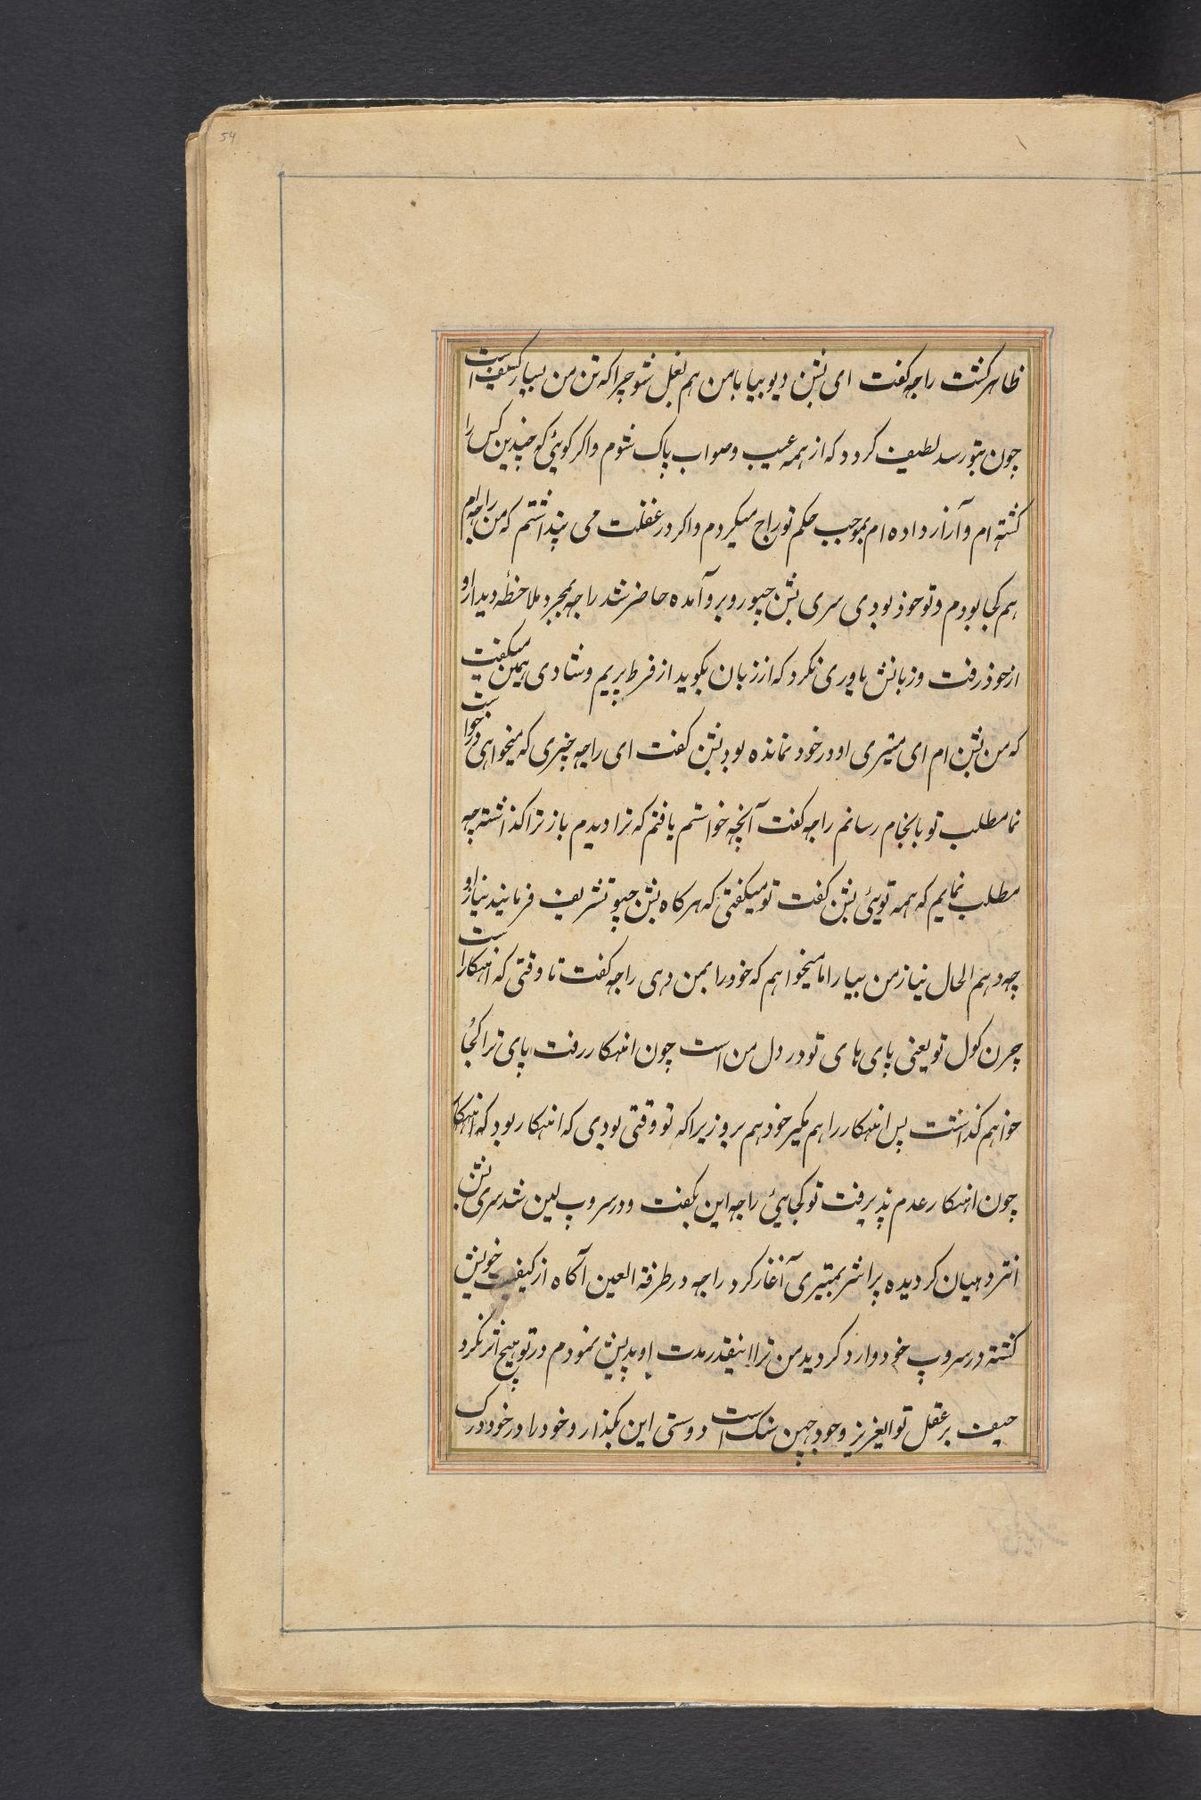 54
ظاهر کشت راجه کفت ای بشن دیو بیا با من هم بغل شو چرا که تن من بسیار کثیف است
چون بتو رسد لطیف کردد که از همه عیب وصواب پاک شوم واکر کوئی که چندین کس را
کشته ام و آزار داده ام بموجب حکم تو راج میکردم واکر در غفلت می پنداشتم که من راجه ام
هم کجا بودم و توخود بودی سری بشن جیو روبرو آمده حاضر شد راجه بمجرد ملاحظهٔ دیدار او
از خود رفت وزبانش یاوری نکرد که از زبان بکوید از فرط پریم وشادی همین میکفت
که من بشن ام ای میتری او در خود نمانده بود بشن کفت ای راجه چیزی که میخواهی درخواست
نما مطلب تو بانجام رسانم راجه کفت آنچه خواستم یافتم که ترا دیدم باز ترا کذاشته چه
مطلب نمایم که همه توئی بشن کفت تو میکفتی که هرکاه بشن جیو تشریف فرمایند نیاز او
چه دهم الحال نیاز من بیار اما میخواهم که خود را بمن دهی راجه کفت تا وقتی که اهنکار است
چرن کول تو یعنی پای های تو در دل من است چون اهنکار رفت پای ترا کجا
خواهم کذاشت پس اهنکار را هم مکیر خود هم برو زیرا که تو وقتی بودی که اهنکار بود که اهنکار
چون اهنکار عدم پذیرفت تو کجایی راجه این بکفت ودر سروپ لین شد سری بشن
انتردهیان کردیده پراشر بمیتری آغاز کرد راجه در طرفة العین آکاه از کیفیت خویش
کشته در سروپ خود وارد کردید من ترا اینقدر مدت اوپدیش نمودم در تو هیچ اثر نکرد
حیف بر عقل تو ایعزیز وجود چین سنک است دوستی این بکذار وخود را در خود درک